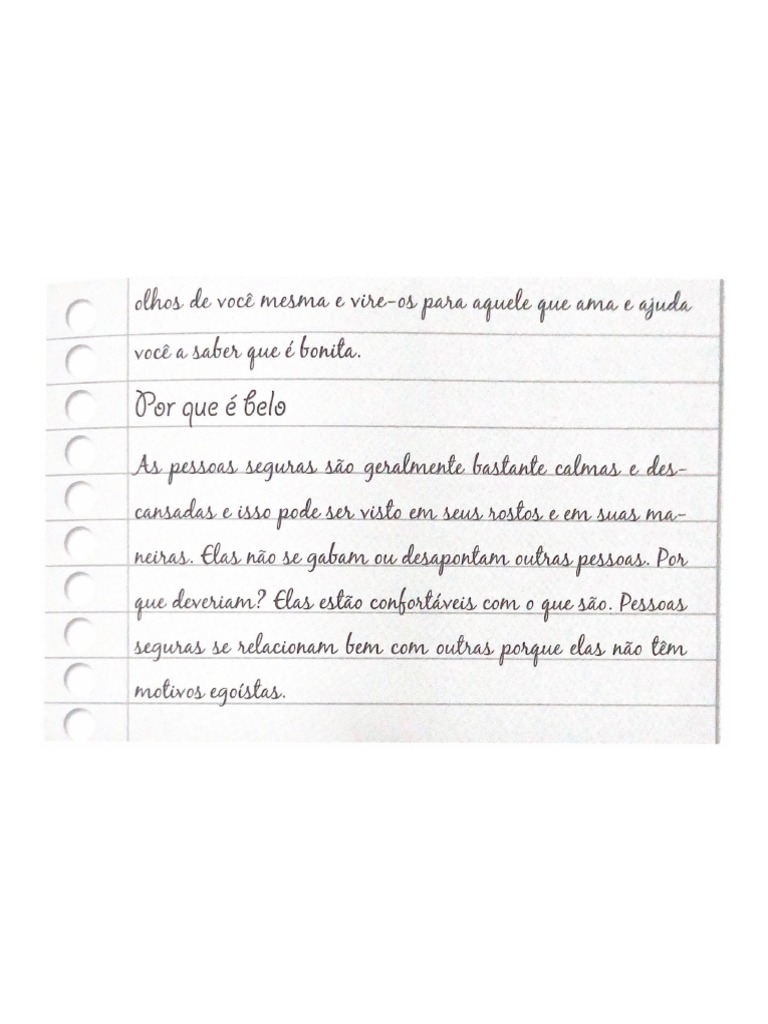 olhos de você mesma e vire-os para aquele que ama e ajuda
você a saber que é bonita.
Por que é belo
As pessoas seguras são geralmente bastante calmas e des-
cansadas e isso pode ser visto em seus rostos e em suas ma-
neiras. Elas não se gabam ou desapontam outras pessoas. Por
que deveriam? Elas estão confortáveis com o que são. Pessoas
seguras se relacionam bem com outras porque elas não têm
motivos egoístas.